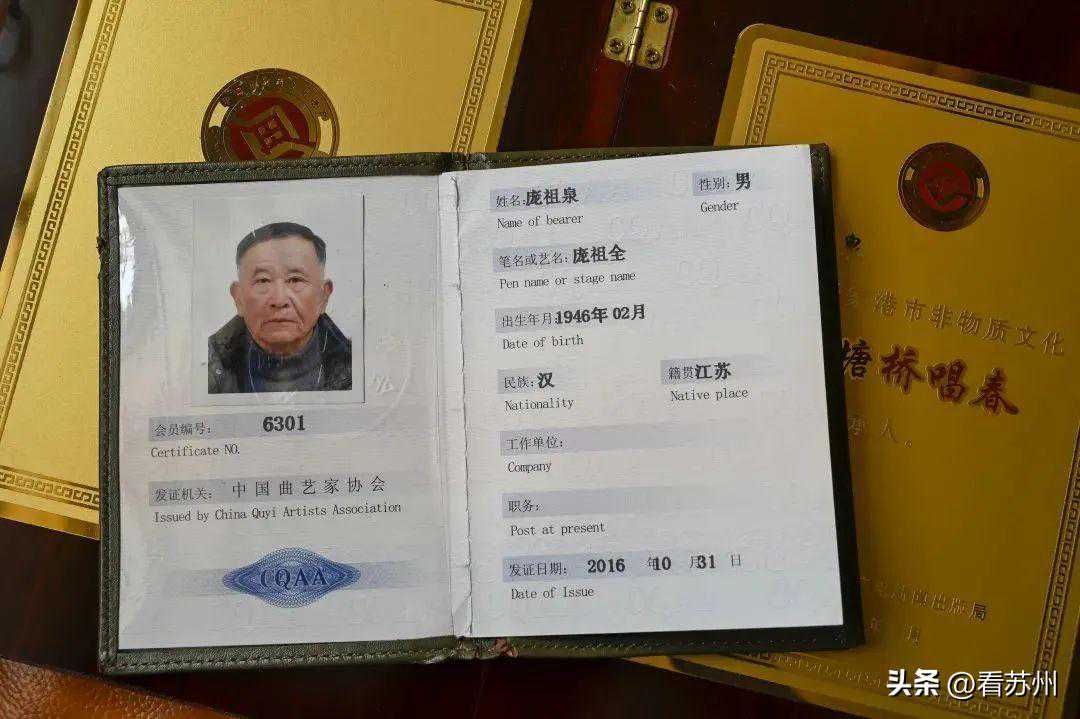 会员编号： 6301
Certificate NO.
发证机关： 中国曲艺家协会
Issued by China Quyi Artists Association
CQAA
姓名：庞祖泉
Name of bearer
性别：男
Gender
笔名或艺名：庞祖全
Pen name or stage name
出生年月：1946年02月
Date of birth
民族：汉
Nationality
籍贯江苏
Native place
工作单位：
Company
职务：
Post at present
发证日期： 2016 年10 月31 日
Date of Issue
港市非物质文化
塘桥唱春
承人。
出版局
年 月
头条 @看苏州